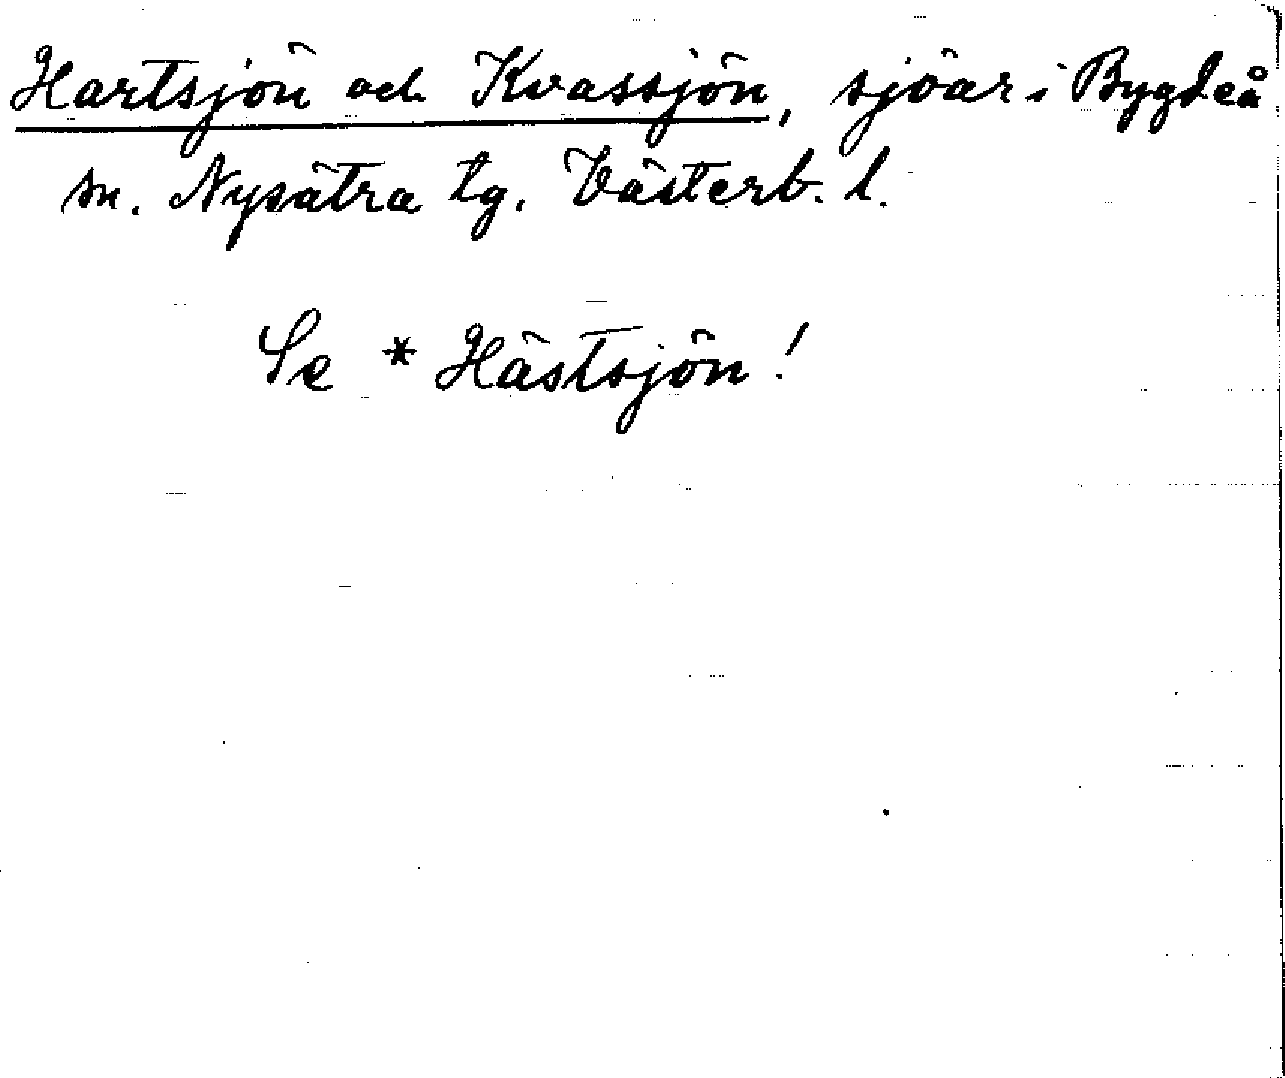 Hartsjön och Kvassjön, sjöar i Bygdeå
sn. Nysätra tg. Västerb. l.
Se * Hästsjön!